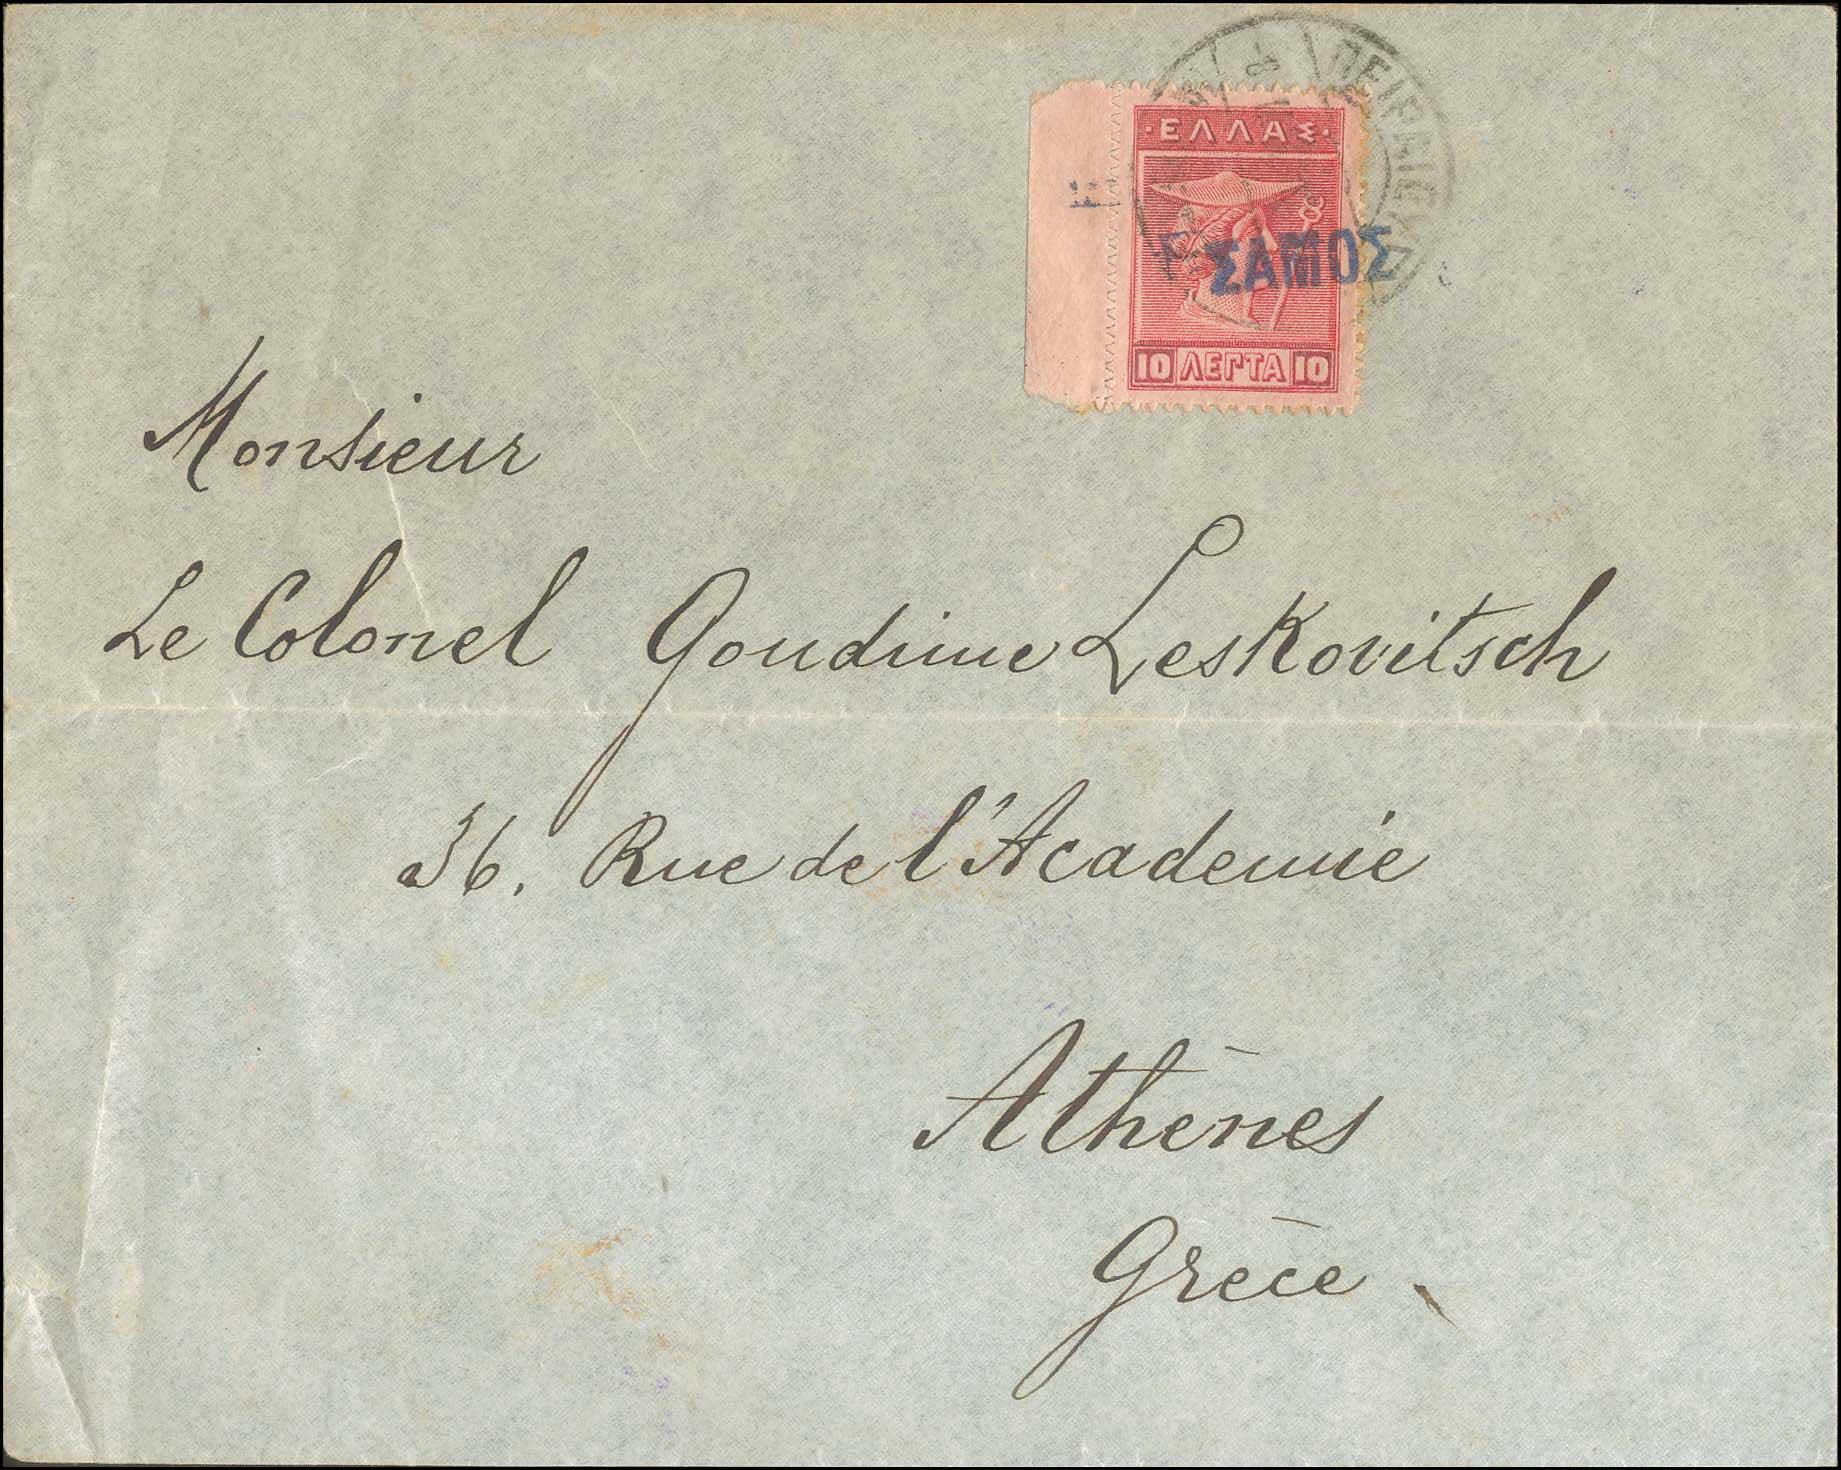 ΠΕΙΡΑΙΕΥΣ
·ΕΛΛΑΣ·
ΣΑΜΟΣ
10 ΛΕΠΤΑ 10
Monsieur
Le Colonel Goudime Leskovitsch
36, Rue de l'Academie
Athènes
Grèce